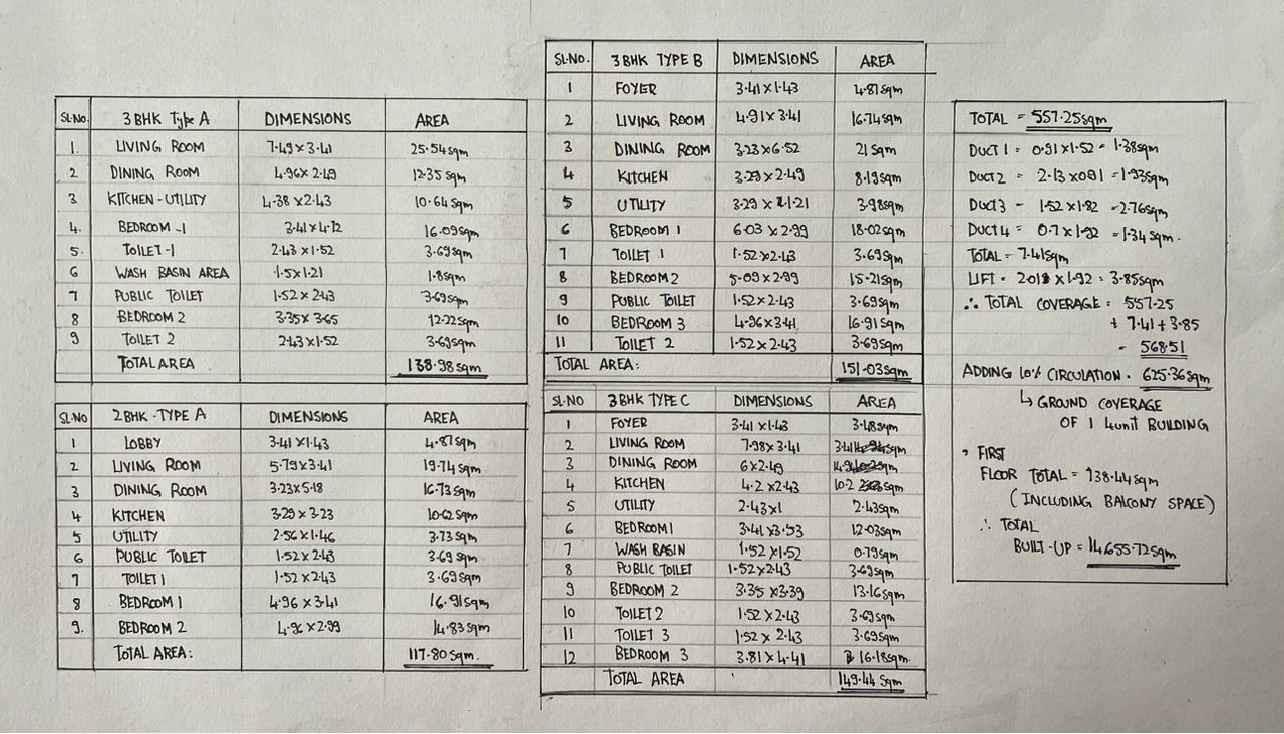 SL.No. 3 BHK Type A DIMENSIONS AREA
1. LIVING ROOM 7.49 x 3.41 25.54 sqm
2 DINING ROOM 4.96 x 2.49 12.35 sqm
3 KITCHEN-UTILITY 4.38 x 2.43 10.64 sqm
4. BEDROOM-1 3.41 x 4.72 16.09 sqm
5. TOILET-1 2.43 x 1.52 3.69 sqm
6 WASH BASIN AREA 1.5 x 1.21 1.8 sqm
7 PUBLIC TOILET 1.52 x 2.43 3.69 sqm
8 BEDROOM 2 3.35 x 3.65 12.22 sqm
9 TOILET 2 2.43 x 1.52 3.69 sqm
TOTAL AREA 138.98 sqm
SL.NO 2 BHK - TYPE A DIMENSIONS AREA
1 LOBBY 3.41 x 1.43 4.87 sqm
2 LIVING ROOM 5.79 x 3.41 19.74 sqm
3 DINING ROOM 3.23 x 5.18 16.73 sqm
4 KITCHEN 3.29 x 3.23 10.62 sqm
5 UTILITY 2.56 x 1.46 3.73 sqm
6 PUBLIC TOILET 1.52 x 2.43 3.69 sqm
7 TOILET 1 1.52 x 2.43 3.69 sqm
8 BEDROOM 1 4.96 x 3.41 16.91 sqm
9. BEDROOM 2 4.96 x 2.99 14.83 sqm
TOTAL AREA: 117.80 sqm.
SL.NO. 3 BHK TYPE B DIMENSIONS AREA
1 FOYER 3.41 x 1.43 4.87 sqm
2 LIVING ROOM 4.91 x 3.41 16.74 sqm
3 DINING ROOM 3.23 x 6.52 21 sqm
4 KITCHEN 3.29 x 2.49 8.19 sqm
5 UTILITY 3.29 x 1.21 3.98 sqm
6 BEDROOM 1 6.03 x 2.99 18.02 sqm
7 TOILET 1 1.52 x 2.43 3.69 sqm
8 BEDROOM 2 5.09 x 2.99 15.21 sqm
9 PUBLIC TOILET 1.52 x 2.43 3.69 sqm
10 BEDROOM 3 4.96 x 3.41 16.91 sqm
11 TOILET 2 1.52 x 2.43 3.69 sqm
TOTAL AREA: 151.03 sqm
SL.NO 3 BHK TYPE C DIMENSIONS AREA
1 FOYER 3.41 x 1.43 3.48 sqm
2 LIVING ROOM 7.98 x 3.41 sqm
3 DINING ROOM 6 x 2.49 14.94 sqm
4 KITCHEN 4.2 x 2.43 10.2 sqm
5 UTILITY 2.43 x 1 2.43 sqm
6 BEDROOM 1 3.41 x 3.53 12.03 sqm
7 WASH BASIN 1.52 x 1.52 0.79 sqm
8 PUBLIC TOILET 1.52 x 2.43 3.69 sqm
9 BEDROOM 2 3.35 x 3.39 13.16 sqm
10 TOILET 2 1.52 x 2.43 3.69 sqm
11 TOILET 3 1.52 x 2.43 3.69 sqm
12 BEDROOM 3 3.81 x 4.41 16.18 sqm.
TOTAL AREA 149.44 sqm
TOTAL = 557.25 sqm
DUCT 1 = 0.91 x 1.52 = 1.38 sqm
DUCT 2 = 2.13 x 0.91 = 1.93 sqm
DUCT 3 - 1.52 x 1.82 = 2.76 sqm
DUCT 4 = 0.7 x 1.92 = 1.34 sqm.
TOTAL = 7.41 sqm
LIFT = 2.018 x 1.92 = 3.85 sqm
∴ TOTAL COVERAGE = 557.25
+ 7.41 + 3.85
= 568.51
ADDING 10% CIRCULATION = 625.36 sqm
↳ GROUND COVERAGE
OF 1 4unit BUILDING
FIRST
FLOOR TOTAL = 738.44 sqm
(INCLUDING BALCONY SPACE)
∴ TOTAL
BUILT-UP = 14655.72 sqm